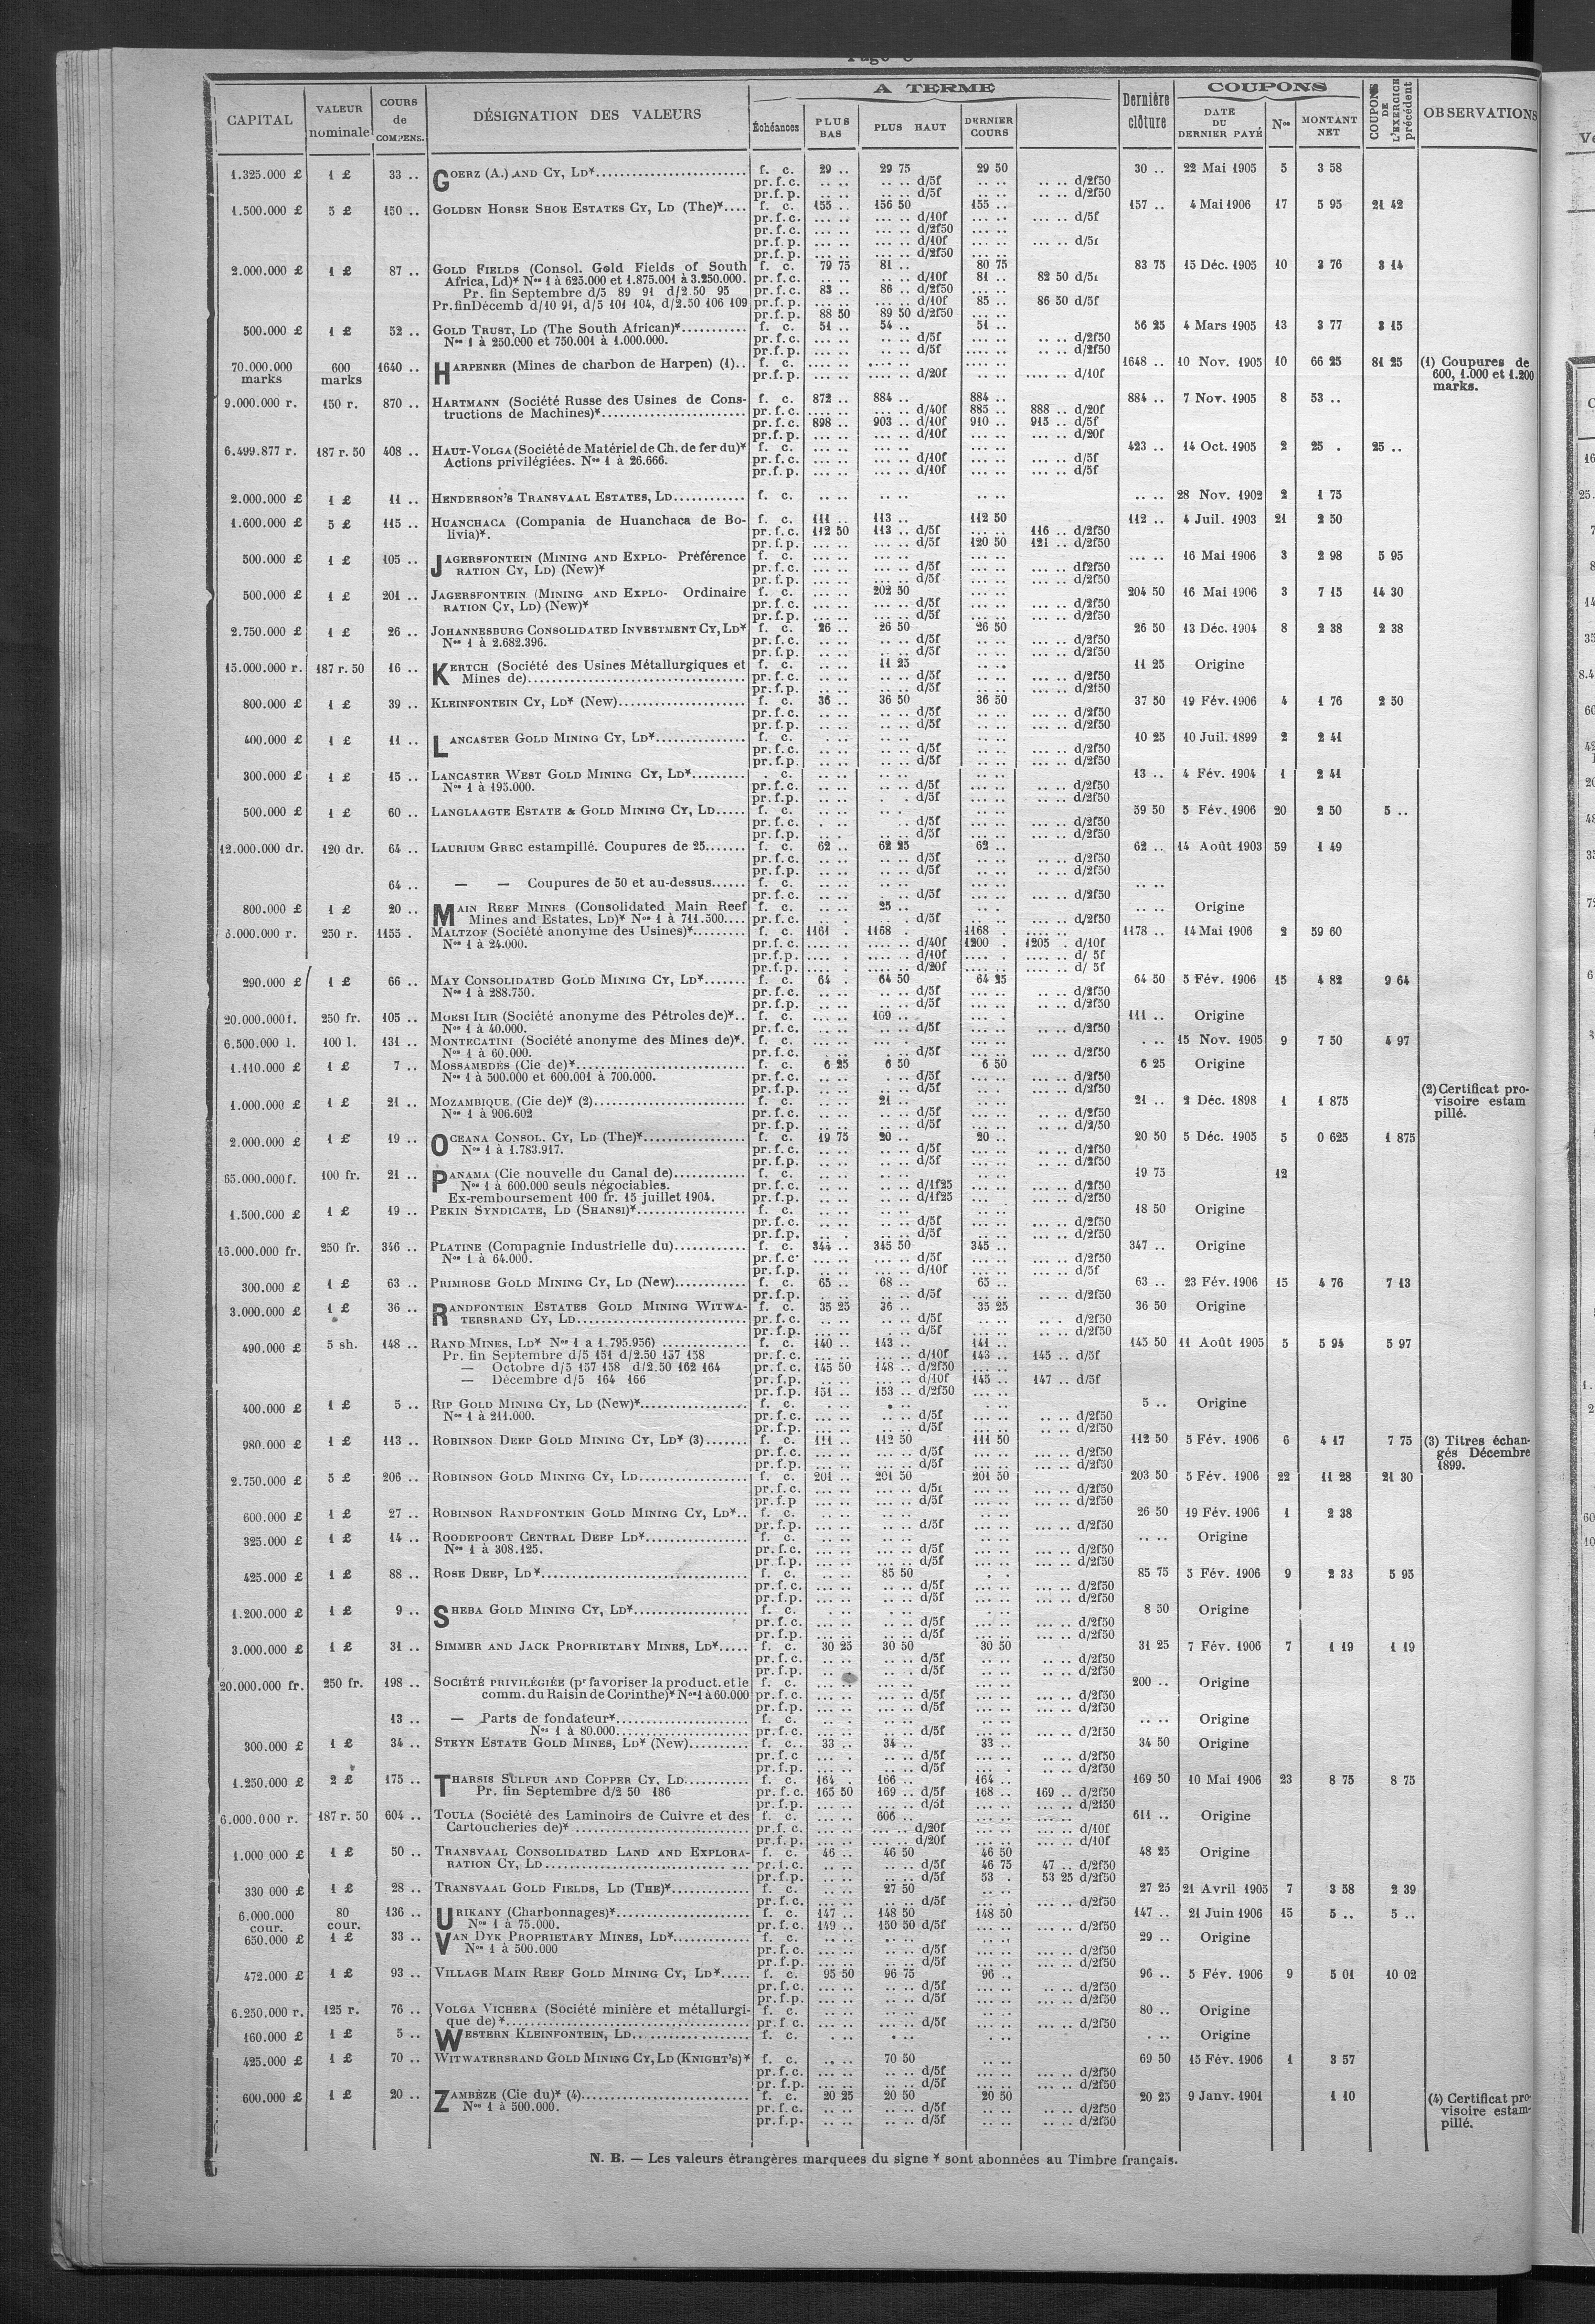 CAPITAL VALEUR nominale COURS de COMPENS. DÉSIGNATION DES VALEURS A TERME Échéances PLUS BAS PLUS HAUT DERNIER COURS Dernière clôture COUPONS DATE DU DERNIER PAYÉ Nos MONTANT NET COUPONS DE L'EXERCICE précédent OBSERVATIONS
1.325.000 £ 1 £ 33 .. GOERZ (A.) AND CY, LD*.......... f. c. 29 .. 29 75 29 50 30 .. 22 Mai 1905 5 3 58
pr. f. c. .. .. .. .. d/5f .. .. .. .. d/2f50
pr. f. p. .. .. .. .. d/5f .. .. .. .. d/2f50
1.500.000 £ 5 £ 150 .. GOLDEN HORSE SHOE ESTATES CY, LD (The)*.... f. c. 155 .. 156 50 155 .. 157 .. 4 Mai 1906 17 5 95 21 42
pr. f. c. ... .. ... .. d/10f ... .. ... .. d/5f
pr. f. c. ... .. ... .. d/2f50
pr. f. p. ... .. ... .. d/10f ... .. ... .. d/5f
pr. f. p. ... .. ... .. d/2f50
2.000.000 £ 1 £ 87 .. GOLD FIELDS (Consol. Gold Fields of South f. c. 79 75 81 .. 80 75 83 75 15 Déc. 1905 10 3 76 3 14
Africa, Ld)* Nos 1 à 625.000 et 1.875.001 à 3.250.000. pr. f. c. .. .. .. .. d/10f 81 .. 82 50 d/5f
Pr. fin Septembre d/5 89 91 d/2.50 95 pr. f. c. 83 .. 86 .. d/2f50
Pr. fin Décemb d/10 91, d/5 101 104, d/2.50 106 109 pr. f. p. ... .. ... .. d/10f 85 .. 86 50 d/5f
pr. f. p. 88 50 89 50 d/2f50
500.000 £ 1 £ 52 .. GOLD TRUST, LD (The South African)*.......... f. c. 51 .. 54 .. 51 .. 56 25 4 Mars 1905 13 3 77 3 15
Nos 1 à 250.000 et 750.001 à 1.000.000. pr. f. c. .. .. .. .. d/5f .. .. .. .. d/2f50
pr. f. p. .. .. .. .. d/5f .. .. .. .. d/2f50
70.000.000 600 1640 .. HARPENER (Mines de charbon de Harpen) (1).. f. c. .... .. .... .. .... .. 1648 .. 10 Nov. 1905 10 66 25 81 25 (1) Coupures de
marks marks pr. f. p. .... .. .... .. d/20f .... .. d/10f 600, 1.000 et 1.200
marks.
9.000.000 r. 150 r. 870 .. HARTMANN (Société Russe des Usines de Cons- f. c. 872 .. 884 .. 884 .. 884 .. 7 Nov. 1905 8 53 ..
tructions de Machines)*.......... pr. f. c. .... .. ... .. d/40f 885 .. 888 .. d/20f
pr. f. c. 898 .. 903 .. d/10f 910 .. 915 .. d/5f
pr. f. p. ... .. ... .. d/10f ... .. d/20f
6.499.877 r. 187 r. 50 408 .. HAUT-VOLGA (Société de Matériel de Ch. de fer du)* f. c. ... .. ... .. ... .. 423 .. 14 Oct. 1905 2 25 . 25 ..
Actions privilégiées. Nos 1 à 26.666. pr. f. c. ... .. ... .. d/10f ... .. ... .. d/5f
pr. f. p. ... .. ... .. d/10f ... .. ... .. d/5f
2.000.000 £ 1 £ 11 .. HENDERSON'S TRANSVAAL ESTATES, LD.......... f. c. .. .. .. .. .. .. .. .. 28 Nov. 1902 2 1 75
1.600.000 £ 5 £ 115 .. HUANCHACA (Compania de Huanchaca de Bo- f. c. 111 .. 113 .. 112 50 112 .. 4 Juil. 1903 21 2 50
livia)*. pr. f. c. 112 50 113 .. d/5f ... .. 116 .. d/2f50
pr. f. p. ... .. ... .. d/5f 120 50 121 .. d/2f50
500.000 £ 1 £ 105 .. JAGERSFONTEIN (MINING AND EXPLO- Préférence f. c. ... .. ... .. ... .. ... .. 16 Mai 1906 3 2 98 5 95
RATION CY, LD) (New)* pr. f. c. ... .. ... .. d/5f ... .. df2f50
pr. f. p. ... .. ... .. d/5f ... .. d/2f50
500.000 £ 1 £ 201 .. JAGERSFONTEIN (MINING AND EXPLO- Ordinaire f. c. ... .. 202 50 ... .. 204 50 16 Mai 1906 3 7 15 14 30
RATION CY, LD) (New)* pr. f. c. ... .. ... .. d/5f ... .. d/2f50
pr. f. p. ... .. ... .. d/5f ... .. d/2f50
2.750.000 £ 1 £ 26 .. JOHANNESBURG CONSOLIDATED INVESTMENT CY, LD* f. c. 26 .. 26 50 26 50 26 50 13 Déc. 1904 8 2 38 2 38
Nos 1 à 2.682.396. pr. f. c. .. .. .. .. d/5f .. .. d/2f50
pr. f. p. .. .. .. .. d/5f .. .. d/2f50
15.000.000 r. 187 r. 50 16 .. KERTCH (Société des Usines Métallurgiques et f. c. .. .. 11 25 .. .. 11 25 Origine
Mines de).......... pr. f. c. .. .. .. .. d/5f ... .. d/2f50
pr. f. p. .. .. .. .. d/5f ... .. d/2f50
800.000 £ 1 £ 39 .. KLEINFONTEIN CY, LD* (New).......... f. c. 36 .. 36 50 36 50 37 50 19 Fév. 1906 4 1 76 2 50
pr. f. c. .. .. .. .. d/5f ... .. d/2f50
pr. f. p. .. .. .. .. d/5f ... .. d/2f50
400.000 £ 1 £ 11 .. LANCASTER GOLD MINING CY, LD*.......... f. c. .. .. .. .. .. .. 10 25 10 Juil. 1899 2 2 41
pr. f. c. .. .. .. .. d/5f ... .. d/2f50
pr. f. p. .. .. .. .. d/5f ... .. d/2f50
300.000 £ 1 £ 15 .. LANCASTER WEST GOLD MINING CY, LD*.......... . c. .. .. .. .. .. .. 13 .. 4 Fév. 1904 1 2 41
Nos 1 à 195.000. pr. f. c. .. .. .. .. d/5f .. .. d/2f50
pr. f. p. .. .. . . d/5f .. .. d/2f50
500.000 £ 1 £ 60 .. LANGLAAGTE ESTATE & GOLD MINING CY, LD..... f. c. .. .. .. . .. .. 59 50 5 Fév. 1906 20 2 50 5 ..
pr. f. c. . .. .. d/5f ... .. d/2f50
pr. f. p. .. .. .. .. d/5f ... .. d/2f50
12.000.000 dr. 120 dr. 64 .. LAURIUM GREC estampillé. Coupures de 25....... f. c. 62 .. 62 25 62 .. 62 .. 14 Août 1903 59 1 49
pr. f. c. .. .. .. .. d/5f .. .. d/2f50
pr. f. p. .. .. .. .. d/5f .. .. d/2f50
64 .. — — Coupures de 50 et au-dessus...... f. c. .. .. .. .. .. .. .. ..
pr. f. c. .. .. .. .. d/5f ... .. d/2f50
800.000 £ 1 £ 20 .. MAIN REEF MINES (Consolidated Main Reef f. c. .. .. 25 .. .. . .. .. Origine
Mines and Estates, LD)* Nos 1 à 711.500.... pr. f. c. .. . . .. d/5f ... .. d/2f50
6.000.000 r. 250 r. 1155 . MALTZOF (Société anonyme des Usines)*.......... f. c. 1161 . 1168 . 1168 . 1178 .. 14 Mai 1906 2 59 60
Nos 1 à 24.000. pr. f. c. .... . .... .. d/40f 1200 . 1205 . d/10f
pr. f. p. .... . .... .. d/10f .... . .... .. d/ 5f
pr. f. p. .... . .... .. d/20f .... . .... .. d/ 5f
290.000 £ 1 £ 66 .. MAY CONSOLIDATED GOLD MINING CY, LD*....... f. c. 64 . 64 50 64 25 64 50 5 Fév. 1906 15 4 82 9 64
Nos 1 à 288.750. pr. f. c. .. .. .. .. d/5f .. .. d/2f50
pr. f. p. .. .. .. .. d/5f .. .. d/2f50
20.000.000 f. 250 fr. 105 .. MOESI ILIR (Société anonyme des Pétroles de)*.. f. c. ... .. 109 .. ... . 111 .. Origine
Nos 1 à 40.000. pr. f. c. .. .. .. .. d/5f .. .. d/2f50
6.500.000 l. 100 l. 131 .. MONTECATINI (Société anonyme des Mines de)*. f. c. .. .. .. . .. .. . .. 15 Nov. 1905 9 7 50 4 97
Nos 1 à 60.000. pr. f. c. .. .. .. .. d/5f ... .. d/2f50
1.110.000 £ 1 £ 7 .. MOSSAMEDÈS (Cie de)*.......... f. c. 6 25 6 50 6 50 6 25 Origine
Nos 1 à 500.000 et 600.001 à 700.000. pr. f. c. .. .. . .. d/5f ... .. d/2f50
pr. f. p. .. .. .. .. d/5f ... .. d/2f50
1.000.000 £ 1 £ 21 .. MOZAMBIQUE (Cie de)* (2).......... f. c. .. .. 21 .. .. .. 21 .. 2 Déc. 1898 1 1 875 (2) Certificat pro-
Nos 1 à 906.602 pr. f. c. .. .. .. .. d/5f .. .. d/2f50 visoire estam
pr. f. p. .. .. .. .. d/5f .. .. d/2/50 pillé.
2.000.000 £ 1 £ 19 .. OCEANA CONSOL. CY, LD (The)*.......... f. c. 19 75 20 .. 20 .. 20 50 5 Déc. 1905 5 0 625 1 875
Nos 1 à 1.783.917. pr. f. c. .. .. .. .. d/5f .. .. d/2f50
pr. f. p. .. .. .. .. d/5f .. .. d/2f50
65.000.000 f. 100 fr. 21 .. PANAMA (Cie nouvelle du Canal de).......... f. c. ... .. .. .. ... .. 19 75 12
Nos 1 à 600.000 seuls négociables. pr. f. c. ... .. .. .. d/1f25 ... .. d/2f50
Ex-remboursement 100 fr. 15 juillet 1904. pr. f. p. ... .. .. .. d/1f25 ... .. d/2f50
1.500.000 £ 1 £ 19 .. PEKIN SYNDICATE, LD (SHANSI)*.......... f. c. .. .. .. .. .. .. 18 50 Origine
pr. f. c. .. .. .. .. d/5f ... .. d/2f50
pr. f. p. .. .. .. .. d/5f ... .. d/2f50
16.000.000 fr. 250 fr. 346 .. PLATINE (Compagnie Industrielle du).......... f. c. 344 .. 345 50 345 .. 347 .. Origine
Nos 1 à 64.000. pr. f. c. ... .. ... .. d/5f ... .. d/2f50
pr. f. p. ... .. ... .. d/10f ... .. d/5f
300.000 £ 1 £ 63 .. PRIMROSE GOLD MINING CY, LD (New).......... f. c. 65 .. 68 .. 65 .. 63 .. 23 Fév. 1906 15 4 76 7 13
pr. f. p. .. .. .. .. d/5f ... .. d/2f50
3.000.000 £ 1 £ 36 .. RANDFONTEIN ESTATES GOLD MINING WITWA- f. c. 35 25 36 .. 35 25 36 50 Origine
TERSRAND CY, LD.......... pr. f. c. .. .. .. .. d/5f .. . d/2f50
pr. f. p. .. .. .. .. d/5f ... .. d/2f50
490.000 £ 5 sh. 148 .. RAND MINES, LD* Nos 1 a 1.795.956) .......... f. c. 140 .. 143 .. 141 .. 145 50 11 Août 1905 5 5 94 5 97
Pr. fin Septembre d/5 151 d/2.50 157 158 pr. f. c. ... .. ... .. d/10f 143 .. 145 .. d/5f
— Octobre d/5 157 158 d/2.50 162 164 pr. f. c. 145 50 148 .. d/2f50 ... ..
— Décembre d/5 164 166 pr. f. p. ... .. ... .. d/10f 145 .. 147 .. d/5f
pr. f. p. 151 .. 153 .. d/2f50 ... ..
400.000 £ 1 £ 5 .. RIP GOLD MINING CY, LD (New)*.......... f. c. . .. .. .. . .. 5 .. Origine
Nos 1 à 211.000. pr. f. c. ... .. .. .. d/5f .. .. d/2f50
pr. f. p. ... .. .. .. d/5f .. .. d/2f50
980.000 £ 1 £ 113 .. ROBINSON DEEP GOLD MINING CY, LD* (3)....... f. c. 111 .. 112 50 111 50 112 50 5 Fév. 1906 6 4 17 7 75 (3) Titres échan-
pr. f. c. ... .. ... .. d/5f ... .. d/2f50 gés Décembre
pr. f. p. ... .. ... .. d/5f ... .. d/2f50 1899.
2.750.000 £ 5 £ 206 .. ROBINSON GOLD MINING CY, LD.......... f. c. 201 .. 201 50 201 50 203 50 5 Fév. 1906 22 11 28 21 30
pr. f. c. ... .. ... .. d/5f ... .. d/2f50
pr. f. p ... .. ... .. d/5f ... .. d/2f50
600.000 £ 1 £ 27 .. ROBINSON RANDFONTEIN GOLD MINING CY, LD*.. f. c. ... .. .. .. ... .. 26 50 19 Fév. 1906 1 2 38
pr. f. p. ... .. .. .. d/5f ... .. d/2f50
325.000 £ 1 £ 14 .. ROODEPOORT CENTRAL DEEP LD*.......... f. c. ... .. ... .. ... .. .. .. Origine
Nos 1 à 308.125. pr. f. c. ... .. ... .. d/5f ... .. d/2f50
pr. f. p. ... .. ... .. d/5f ... .. d/2f50
425.000 £ 1 £ 88 .. ROSE DEEP, LD*.......... f. c. .. .. 85 50 . . 85 75 5 Fév. 1906 9 2 33 5 95
pr. f. c. ... .. .. .. d/5f ... .. d/2f50
pr. f. p. ... .. .. .. d/5f ... .. d/2f50
1.200.000 £ 1 £ 9 .. SHEBA GOLD MINING CY, LD*.......... f. c. . .. . .. . .. 8 50 Origine
pr. f. c. ... .. .. .. d/5f ... .. d/2f50
pr. f. p. ... .. .. .. d/5f ... .. d/2f50
3.000.000 £ 1 £ 31 .. SIMMER AND JACK PROPRIETARY MINES, LD*..... f. c. 30 25 30 50 30 50 31 25 7 Fév. 1906 7 1 19 1 19
pr. f. c. .. .. .. .. d/5f .. .. d/2f50
pr. f. p. .. .. .. .. d/5f .. .. d/2f50
20.000.000 fr. 250 fr. 198 .. SOCIÉTÉ PRIVILÉGIÉE (pr favoriser la product. et le f. c. ... .. ... .. ... .. 200 .. Origine
comm. du Raisin de Corinthe)* Nos 1 à 60.000 pr. f. c. ... .. ... .. d/5f ... .. d/2f50
pr. f. p. ... .. ... .. d/5f ... .. d/2f50
13 .. — Parts de fondateur*.......... f. c. .. .. .. .. .. .. .. .. Origine
Nos 1 à 80.000.......... pr. f. c. .. .. .. .. d/5f ... .. d/2f50
300.000 £ 1 £ 34 .. STEYN ESTATE GOLD MINES, LD* (New).......... f. c.. 33 .. 34 .. 33 .. 34 50 Origine
pr. f. c ... . .. .. d/5f .. .. d/2f50
pr. f. p. ... .. .. .. d/5f .. .. d/2f50
1.250.000 £ 2 £ 175 .. THARSIS SULFUR AND COPPER CY, LD.......... f. c. 164 . 166 .. 164 .. 169 50 10 Mai 1906 23 8 75 8 75
Pr. fin Septembre d/2 50 186 pr. f. c. 165 50 169 .. d/5f 168 .. 169 .. d/2f50
pr. f. p. ... .. ... .. d/5f ... .. d/2f50
6.000.000 r. 187 r. 50 604 .. TOULA (Société des Laminoirs de Cuivre et des f. c. ... .. 606 .. ... .. 611 .. Origine
Cartoucheries de)* .......... pr. f. c. ... .. ... .. d/20f ... .. d/10f
pr. f. p. ... .. ... .. d/20f ... .. d/10f
1.000 000 £ 1 £ 50 .. TRANSVAAL CONSOLIDATED LAND AND EXPLORA- f. c. 46 .. 46 50 46 50 48 25 Origine
RATION CY, LD.......... pr. f. c. .. .. .. .. d/5f 46 75 47 .. d/2f50
pr. f. p. .. .. .. .. d/5f 53 . 53 25 d/2f50
330 000 £ 1 £ 28 .. TRANSVAAL GOLD FIELDS, LD (THE)*.......... f. c. .. .. 27 50 .. .. 27 25 21 Avril 1905 7 3 58 2 39
pr. f. c. .. .. .. .. d/5f ... .. d/2f50
6.000.000 80 136 .. URIKANY (Charbonnages)*.......... f. c. 147 .. 148 50 148 50 147 .. 21 Juin 1906 15 5 .. 5 ..
cour. cour. Nos 1 à 75.000. pr. f. c. 149 .. 150 50 d/5f ... .. d/2f50
650.000 £ 1 £ 33 .. VAN DYK PROPRIETARY MINES, LD*.......... f. c. .. .. .. .. .. .. 29 .. Origine
Nos 1 à 500.000 pr. f. c. ... .. .. .. d/5f ... .. d/2f50
pr. f. p. ... .. .. .. d/5f ... .. d/2f50
472.000 £ 1 £ 93 .. VILLAGE MAIN REEF GOLD MINING CY, LD*..... f. c. 95 50 96 75 96 .. 96 .. 5 Fév. 1906 9 5 01 10 02
pr. f. c. ... .. ... .. d/5f ... .. d/2f50
pr. f. p. ... .. ... .. d/5f ... .. d/2f50
6.250.000 r. 125 r. 76 .. VOLGA VICHERA (Société minière et métallurgi- f. c. .. .. .. .. .. .. 80 .. Origine
que de)*.......... pr. f. c. ... .. ... .. d/5f ... .. d/2f50
160.000 £ 1 £ 5 .. WESTERN KLEINFONTEIN, LD.......... f. c. . .. . .. . .. . .. Origine
425.000 £ 1 £ 70 .. WITWATERSRAND GOLD MINING CY, LD (KNIGHT'S)* f. c. ... .. 70 50 .. .. 69 50 15 Fév. 1906 1 3 57
pr. f. c. ... .. .. .. d/5f ... .. d/2f50
pr. f. p. ... .. .. .. d/5f ... .. d/2f50
600.000 £ 1 £ 20 .. ZAMBÈZE (Cie du)* (4).......... f. c. 20 25 20 50 20 50 20 25 9 Janv. 1901 1 10 (4) Certificat pro-
Nos 1 à 500.000. pr. f. c. .. .. .. .. d/5f .. .. d/2f50 visoire estam-
pr. f. p. .. .. .. .. d/5f .. .. d/2f50 pillé.
N. B. — Les valeurs étrangères marquées du signe * sont abonnées au Timbre français.